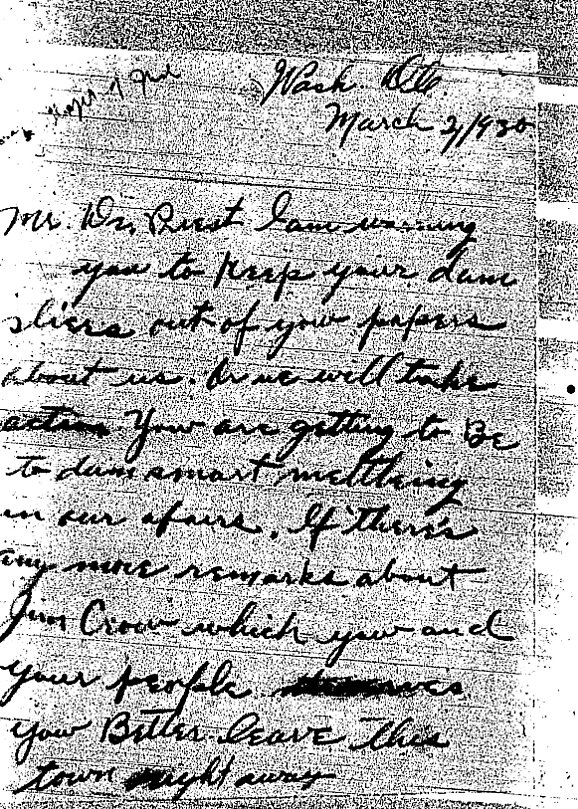 Wash. D.C.
March 2, 1930
Mr. De Priest I am warning
you to Keep your dam
sliers out of your papers
about us. Or we will take
action You are getting to Be
to dam smart meltleing
in our afairs. If there's
any more remarks about
Jim Crow which you and
your people
you Better leave this
town right away